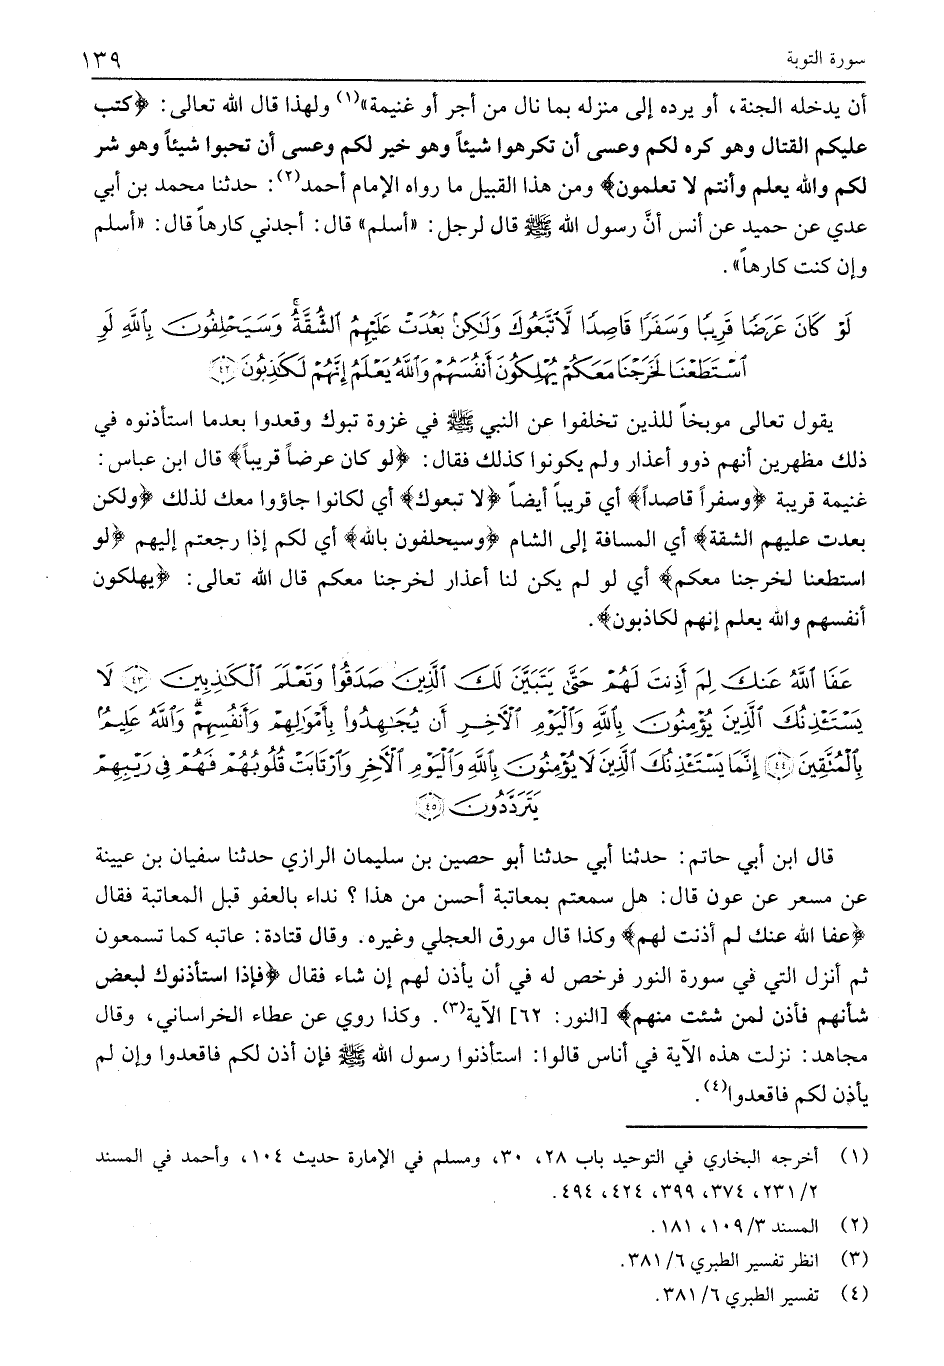 سورة التوبة ١٣٩
أن يدخله الجنة، أو يرده إلى منزله بما نال من أجر أو غنيمة»(١) ولهذا قال الله تعالى: ﴿كتب
عليكم القتال وهو كره لكم وعسى أن تكرهوا شيئاً وهو خير لكم وعسى أن تحبوا شيئاً وهو شر
لكم والله يعلم وأنتم لا تعلمون﴾ ومن هذا القبيل ما رواه الإمام أحمد(٢): حدثنا محمد بن أبي
عدي عن حميد عن أنس أنَّ رسول الله ﷺ قال لرجل: «أسلم» قال: أجدني كارهاً قال: «أسلم
وإن كنت كارهاً».
لَوْ كَانَ عَرَضًا قَرِيبًا وَسَفَرًا قَاصِدًا لَّاتَّبَعُوكَ وَلَٰكِنۢ بَعُدَتْ عَلَيْهِمُ ٱلشُّقَّةُ ۚ وَسَيَحْلِفُونَ بِٱللَّهِ لَوِ
ٱسْتَطَعْنَا لَخَرَجْنَا مَعَكُمْ يُهْلِكُونَ أَنفُسَهُمْ وَٱللَّهُ يَعْلَمُ إِنَّهُمْ لَكَٰذِبُونَ ﴿٤٢﴾
يقول تعالى موبخاً للذين تخلفوا عن النبي ﷺ في غزوة تبوك وقعدوا بعدما استأذنوه في
ذلك مظهرين أنهم ذوو أعذار ولم يكونوا كذلك فقال: ﴿لو كان عرضاً قريباً﴾ قال ابن عباس:
غنيمة قريبة ﴿وسفراً قاصداً﴾ أي قريباً أيضاً ﴿لا تبعوك﴾ أي لكانوا جاؤوا معك لذلك ﴿ولكن
بعدت عليهم الشقة﴾ أي المسافة إلى الشام ﴿وسيحلفون بالله﴾ أي لكم إذا رجعتم إليهم ﴿لو
استطعنا لخرجنا معكم﴾ أي لو لم يكن لنا أعذار لخرجنا معكم قال الله تعالى: ﴿يهلكون
أنفسهم والله يعلم إنهم لكاذبون﴾.
عَفَا ٱللَّهُ عَنكَ لِمَ أَذِنتَ لَهُمْ حَتَّىٰ يَتَبَيَّنَ لَكَ ٱلَّذِينَ صَدَقُوا۟ وَتَعْلَمَ ٱلْكَٰذِبِينَ ﴿٤٣﴾ لَا
يَسْتَـْٔذِنُكَ ٱلَّذِينَ يُؤْمِنُونَ بِٱللَّهِ وَٱلْيَوْمِ ٱلْءَاخِرِ أَن يُجَٰهِدُوا۟ بِأَمْوَٰلِهِمْ وَأَنفُسِهِمْ ۗ وَٱللَّهُ عَلِيمٌۢ
بِٱلْمُتَّقِينَ ﴿٤٤﴾ إِنَّمَا يَسْتَـْٔذِنُكَ ٱلَّذِينَ لَا يُؤْمِنُونَ بِٱللَّهِ وَٱلْيَوْمِ ٱلْءَاخِرِ وَٱرْتَابَتْ قُلُوبُهُمْ فَهُمْ فِى رَيْبِهِمْ
يَتَرَدَّدُونَ ﴿٤٥﴾
قال ابن أبي حاتم: حدثنا أبي حدثنا أبو حصين بن سليمان الرازي حدثنا سفيان بن عيينة
عن مسعر عن عون قال: هل سمعتم بمعاتبة أحسن من هذا؟ نداء بالعفو قبل المعاتبة فقال
﴿عفا الله عنك لم أذنت لهم﴾ وكذا قال مورق العجلي وغيره. وقال قتادة: عاتبه كما تسمعون
ثم أنزل التي في سورة النور فرخص له في أن يأذن لهم إن شاء فقال ﴿فإذا استأذنوك لبعض
شأنهم فأذن لمن شئت منهم﴾ [النور: ٦٢] الآية(٣). وكذا روي عن عطاء الخراساني، وقال
مجاهد: نزلت هذه الآية في أناس قالوا: استأذنوا رسول الله ﷺ فإن أذن لكم فاقعدوا وإن لم
يأذن لكم فاقعدوا(٤).
(١) أخرجه البخاري في التوحيد باب ٢٨، ٣٠، ومسلم في الإمارة حديث ١٠٤، وأحمد في المسند
٢/ ٢٣١، ٣٧٤، ٣٩٩، ٤٢٤، ٤٩٤.
(٢) المسند ٣/ ١٠٩، ١٨١.
(٣) انظر تفسير الطبري ٦/ ٣٨١.
(٤) تفسير الطبري ٦/ ٣٨١.